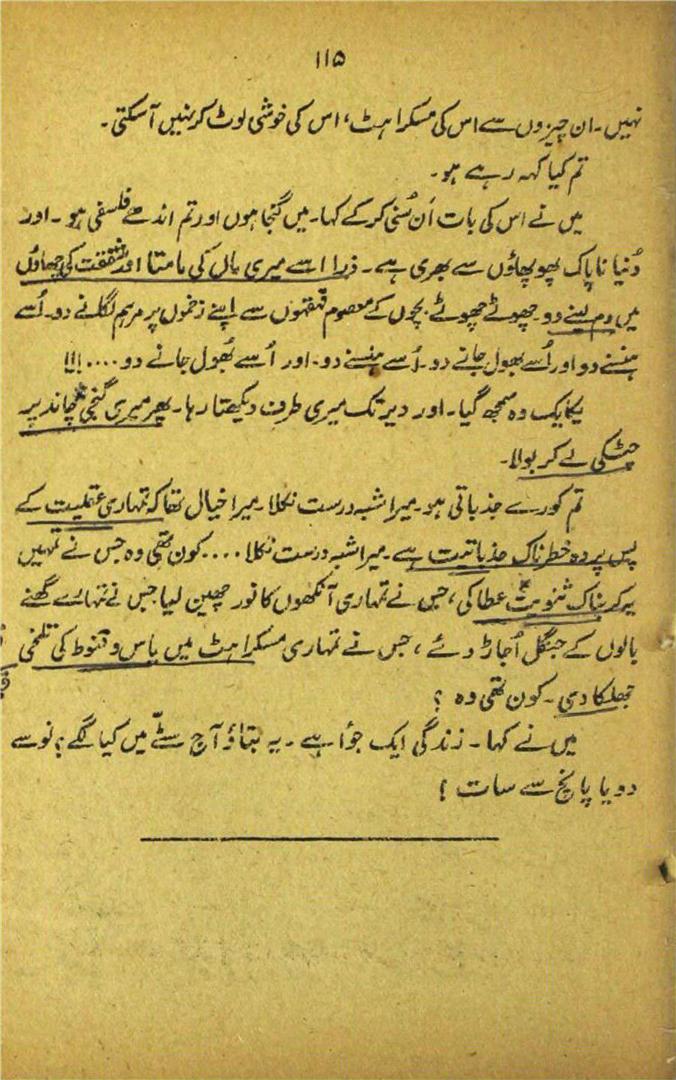 ۱۱۵
نہیں۔ ان چیزوں سے اس کی مسکراہٹ، اس کی خوشی لوٹ کر نہیں آسکتی۔
تم کیا کہہ رہے ہو۔
میں نے اس کی بات اَن سُنی کر کے کہا۔ میں گنجا ہوں اور تم اندھے فلسفی ہو۔ اور
دُنیا ناپاک پھوپھاؤں سے بھری ہے۔ ذرا اسے میری ماں کی مامتا اور شفقت کی چھاؤں
میں دم لینے دو۔ چھوٹے چھوٹے بچوں کے معصوم قہقہوں سے اپنے زخموں پر مرہم لگانے دو۔ اُسے
ہنسنے دو اور اُسے بھول جانے دو۔ اُسے ہنسنے دو۔ اور اُسے بھُول جانے دو....!!!
یکایک وہ سمجھ گیا۔ اور دیر تک میری طرف دیکھتا رہا۔ پھر میری گنجی چاند پر
چٹکی لے کر بولا۔
تم کورے جذباتی ہو۔ میرا شبہ درست نکلا۔ میرا خیال تھا کہ تمہاری عقلیت کے
پس پردہ خطرناک جذباتیت ہے۔ میرا شبہ درست نکلا .... کون تھی وہ جس نے تمہیں
یہ کربناک عطا کی، جس نے تمہاری آنکھوں کا نور چھین لیا جس نے تمہارے گھنے
بالوں کے جنگل اُجاڑ دئے، جس نے تمہاری مسکراہٹ میں یاس و قنوط کی تلخی
جھلکا دی۔ کون تھی وہ ؟
میں نے کہا۔ زندگی ایک جُوا ہے۔ یہ بتاؤ آج سٹّے میں کیا لگے؟ نو سے
دو یا پانچ سے سات ؟